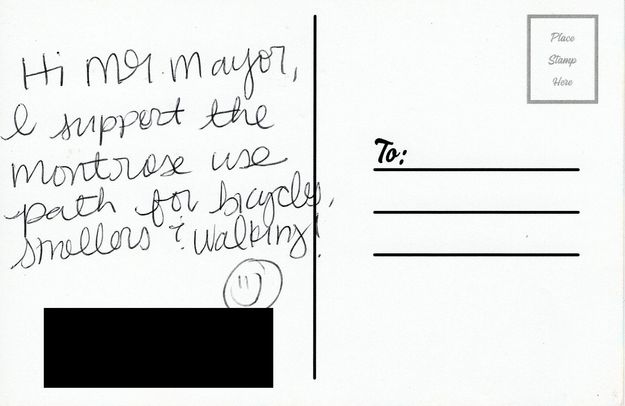 Hi Mr. Mayor,
I support the
montrose use
path for bicycles,
smollers & walking!
Place
Stamp
Here
To: